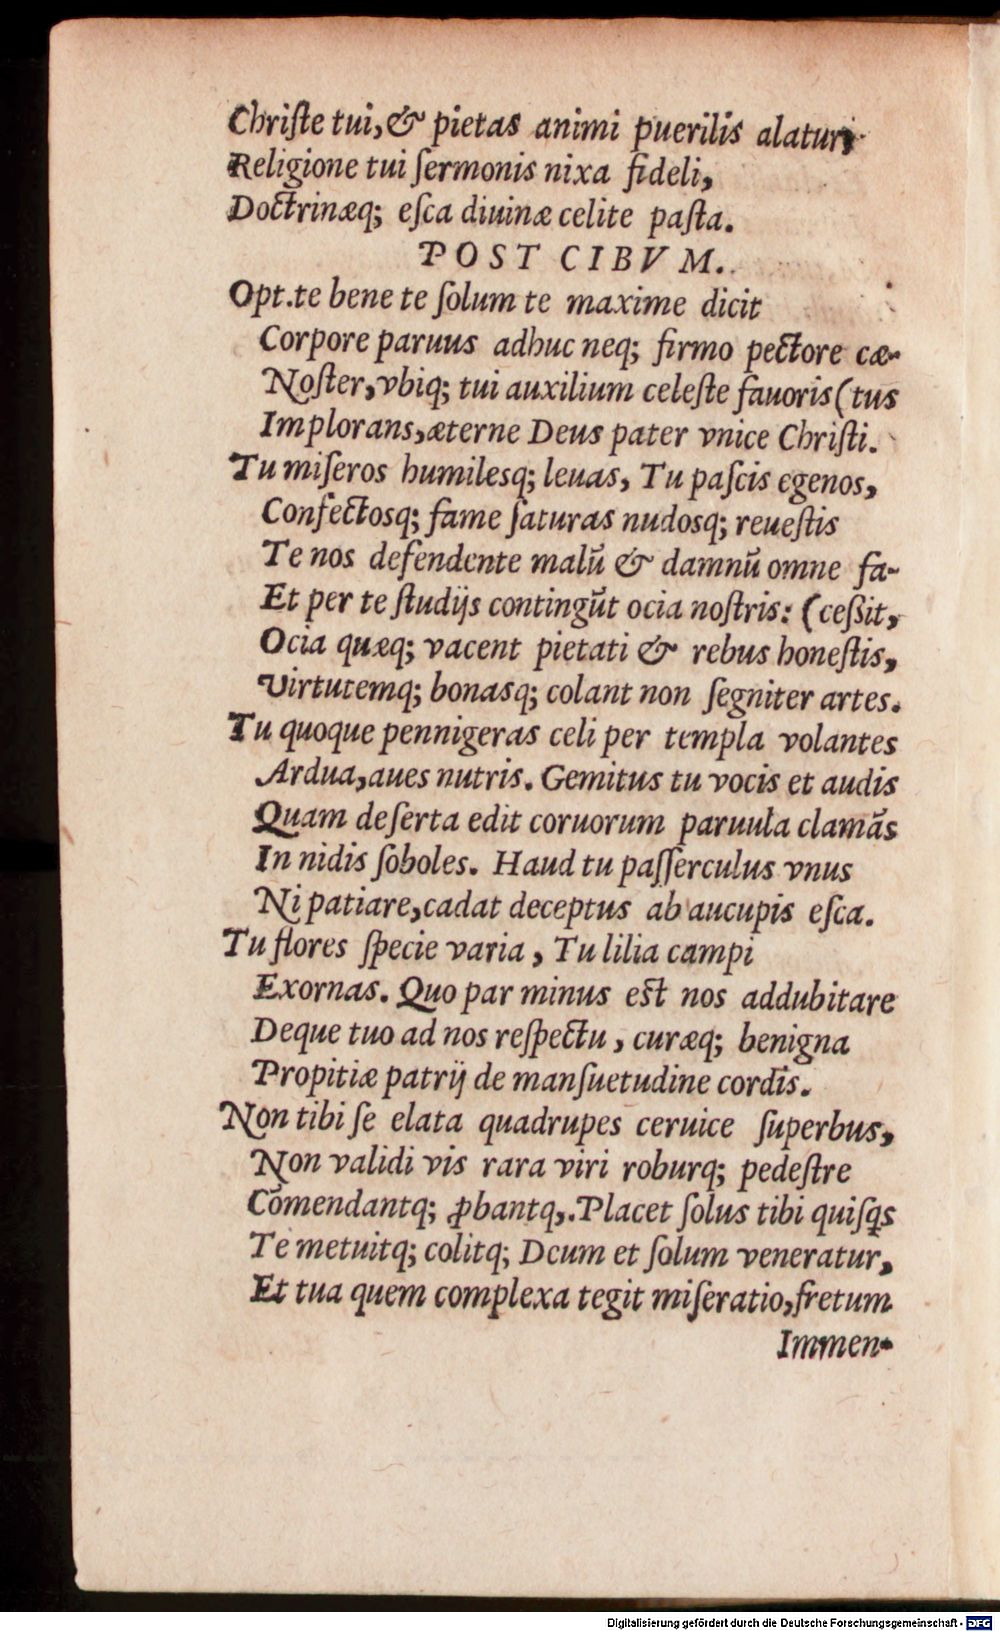 Chriſte tui, & pietas animi puerilis alatur,
Religione tui ſermonis nixa fideli,
Doctrinæq; eſca diuinæ celite paſta.
POST CIBVM.
Opt.te bene te ſolum te maxime dicit
Corpore paruus adhuc neq; firmo pectore cæ-
Noſter, vbiq; tui auxilium celeſte fauoris (tus
Implorans, æterne Deus pater vnice Chriſti.
Tu miſeros humilesq; leuas, Tu paſcis egenos,
Confectosq; fame ſaturas nudosq; reueſtis
Te nos defendente malū & damnū omne fa-
Et per te ſtudijs contingūt ocia noſtris: (ceßit,
Ocia quæq; vacent pietati & rebus honeſtis,
Virtutemq; bonasq; colant non ſegniter artes.
Tu quoque pennigeras celi per templa volantes
Ardua, aues nutris. Gemitus tu vocis et audis
Quam deſerta edit coruorum paruula clamās
In nidis ſoboles. Haud tu paſſerculus vnus
Ni patiare, cadat deceptus ab aucupis eſca.
Tu flores ſpecie varia, Tu lilia campi
Exornas. Quo par minus est nos addubitare
Deque tuo ad nos reſpectu, curæq; benigna
Propitiæ patrij de manſuetudine cordis.
Non tibi ſe elata quadrupes ceruice ſuperbus,
Non validi vis rara viri roburq; pedeſtre
Cōmendantq; ꝓbantq,. Placet ſolus tibi quiſqs
Te metuitq; colitq; Deum et ſolum veneratur,
Et tua quem complexa tegit miſeratio, fretum
Immen-
Digitalisierung gefördert durch die Deutsche Forschungsgemeinschaft - DFG